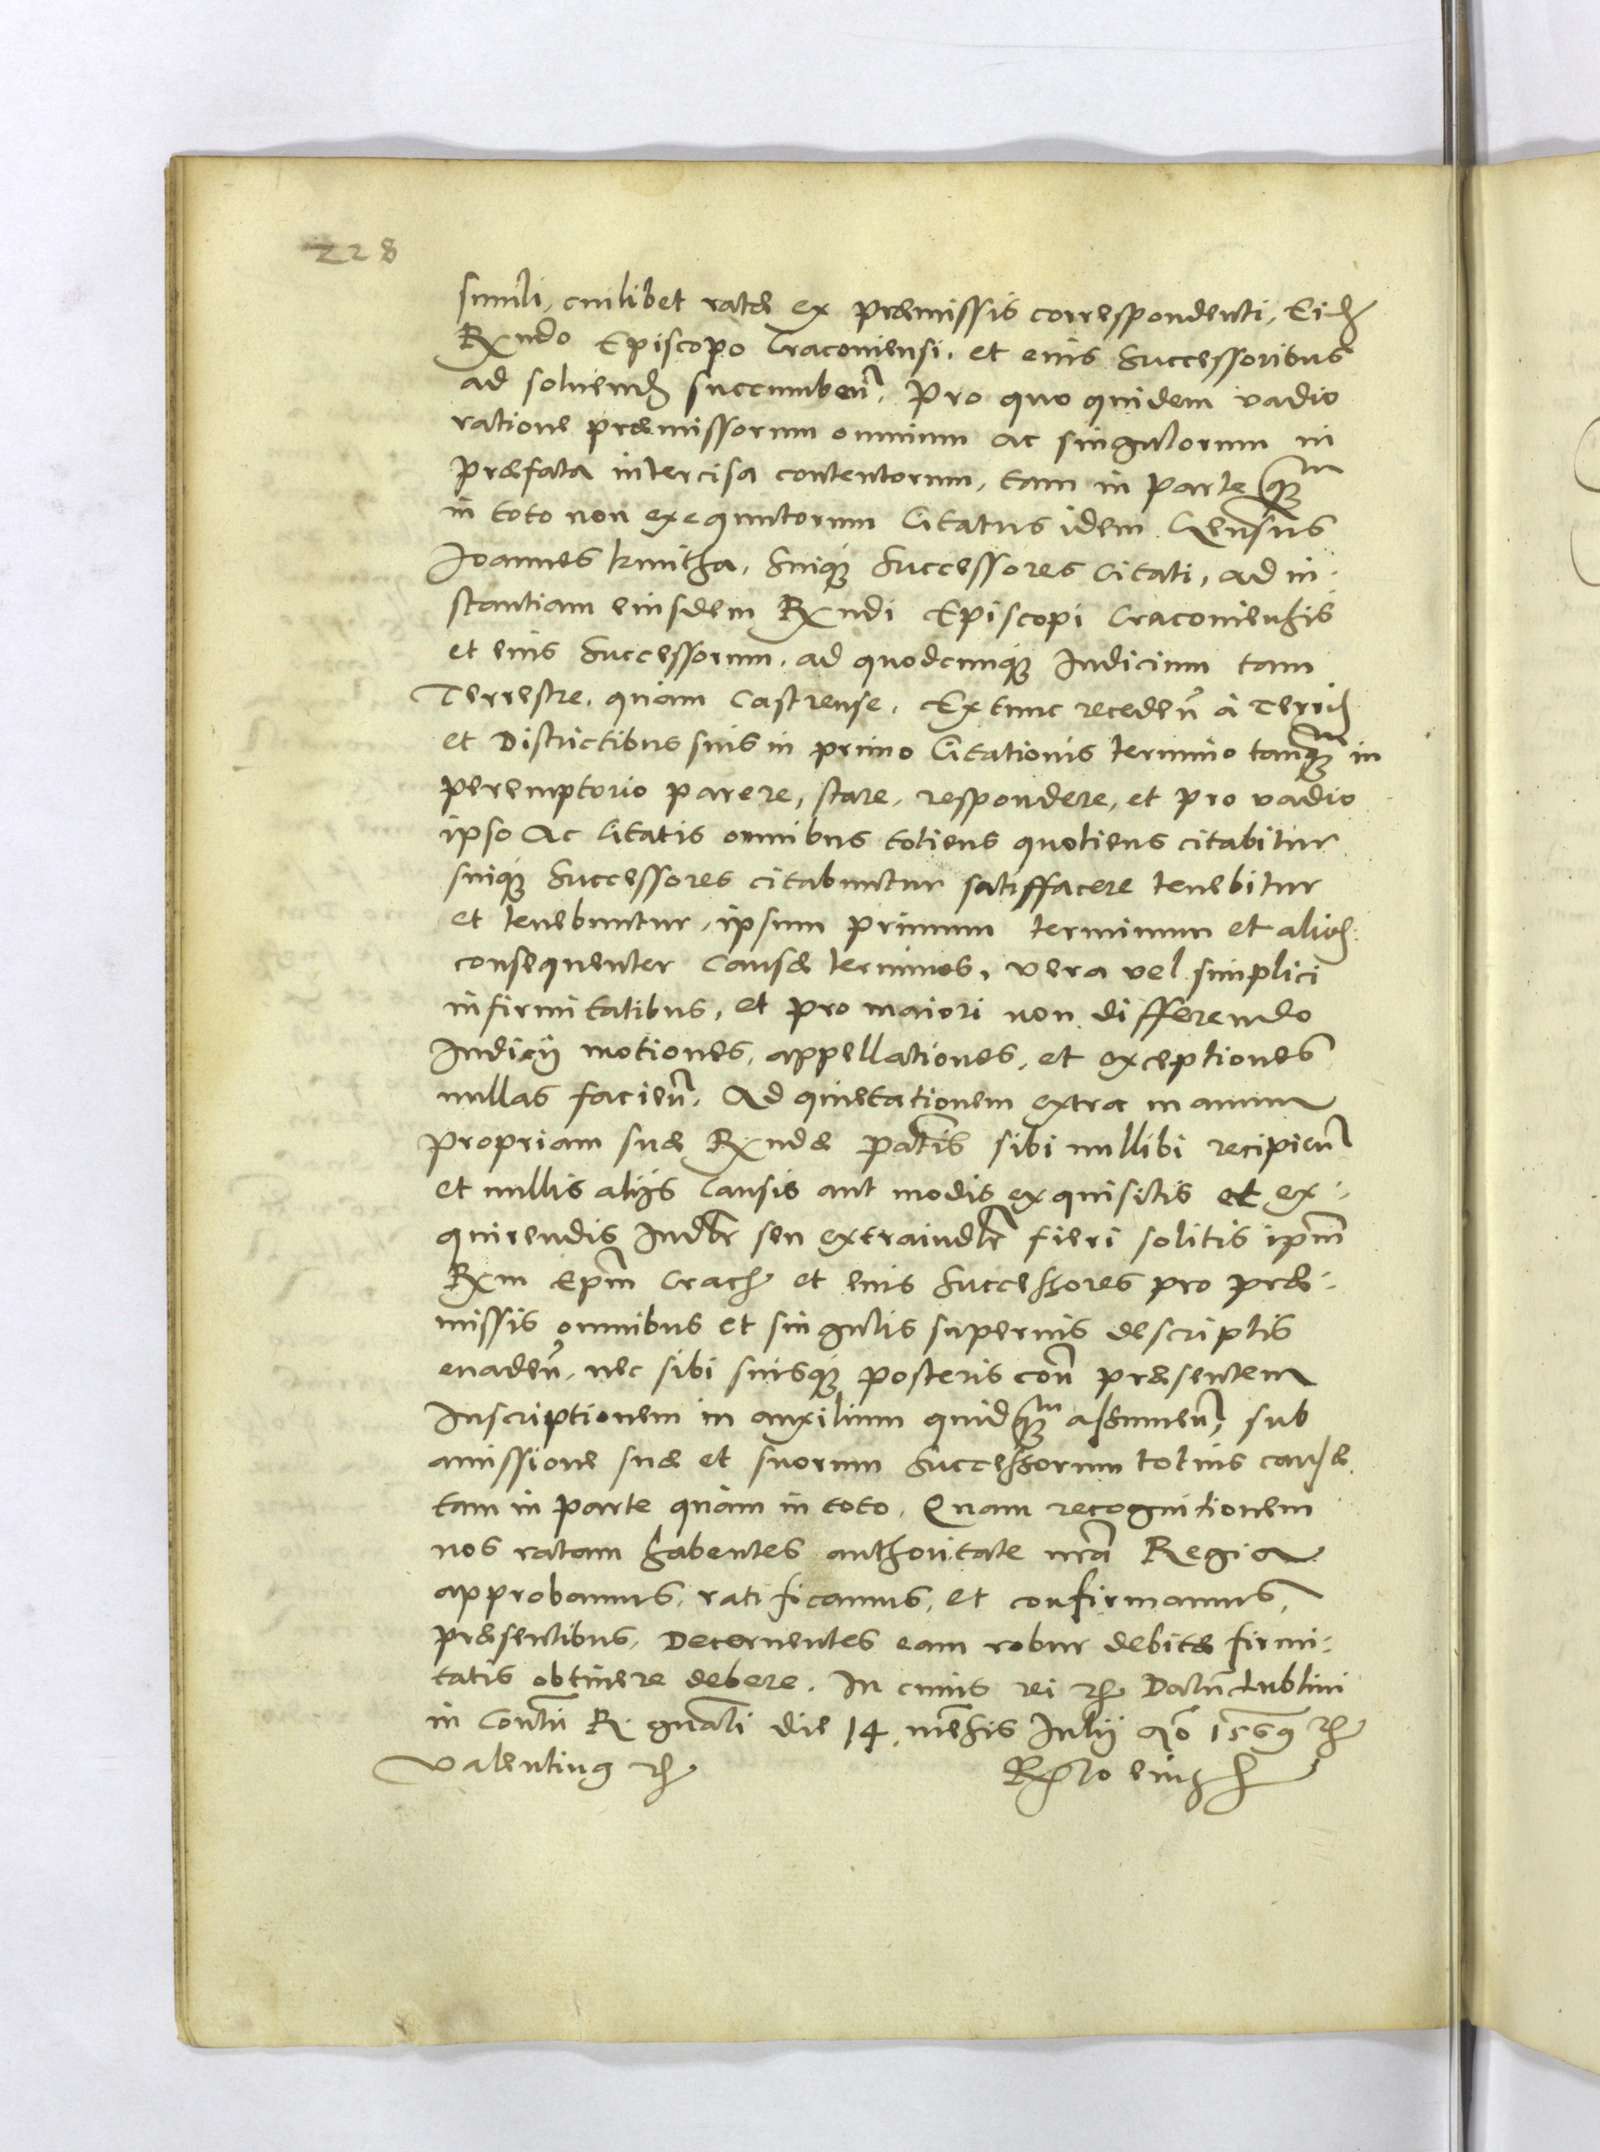 228
simili, cuilibet ratæ ex præmissis correspondenti, Eid
Rxndo Episcopo Cracouiensi. et eius Successoribus
ad soluend succumben. Pro quo quidem vadio
ratione præmissorum omnium ac singulorum in
præfata intercisa contentorum, tam in parte quam
in toto non exequutorum Citatus idem Gensus
Joannes kmitha. Suiq Successores Citati, ad in-
stantiam eiusdem Rxndi Episcopi Cracouiensis
et eius Successorum. ad quodcunq Judicium tam
Terrestre. quàm Castrense. Extunc receden à Terris
et Districtibus suis in primo Citationis termino tanqm in
peremptorio parere, stare, respondere, et pro vadio
ipso Ac Citatis omnibus totiens quotiens citabitur
suiq Successores citabuntur satisfacere tenebitur
et tenebuntur, ipsum primum terminum et alios
consequenter Causæ terminos, vera vel simplici
infirmitatibus, et pro maiori non differendo
Judicij motiones, appellationes, et exceptiones
nullas facien. Ad quietationem extra manum
propriam suæ Rxndæ patnis sibi nullibi recipien
et nullis alijs Causis aut modis exquisitis et ex-
quirendis Judlr seu extraiudlr fieri solitis ipm
Rxm Epm Crac et eius Successores pro præ-
missis omnibus et singulis superius descriptis
euaden. nec sibi suisq posteris con præsentem
Inscriptionem in auxilium quidqm assumen, sub
amissione suæ et suorum Successorum totius causæ
tam in parte quàm in toto. Quam recognitionem
nos ratam habentes authoritate nra Regia
approbamus, ratificamus, et confirmamus,
præsentibus. Decernentes eam robur debitæ firmi-
tatis obtinere debere. In cuius rei  Datum Lublini
in Contu R. gnali die 14 mensis Julij Ao 1569
Valentinus  Rto eiusd